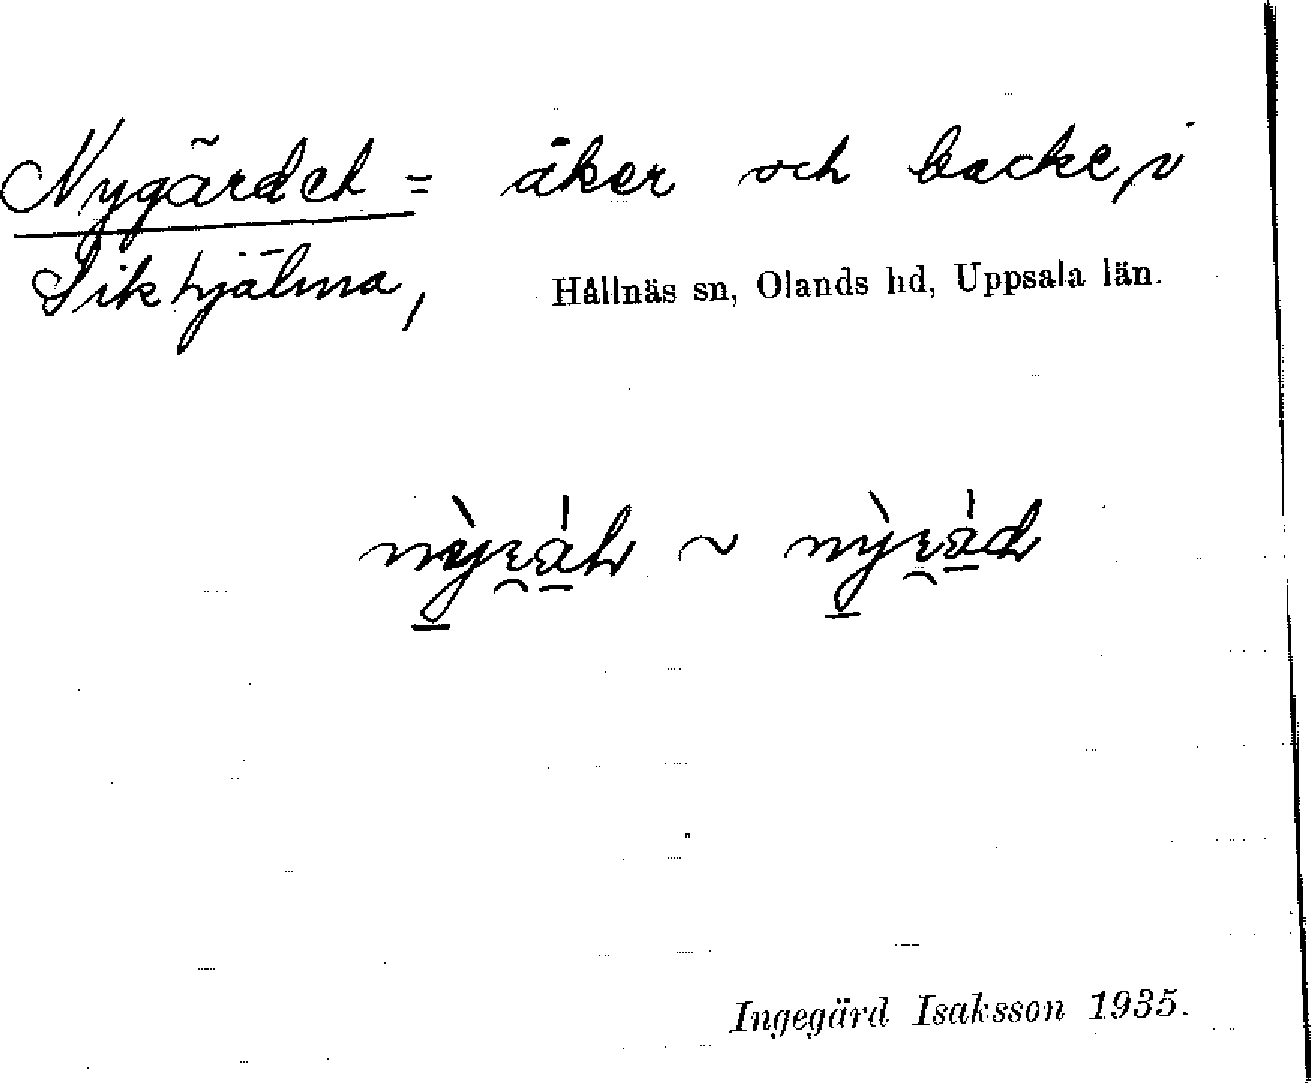 Nygärdet = åker och backe, i
Sikhjälma, Hållnäs sn, Olands hd, Uppsala län.
Ingegärd Isaksson 1935.